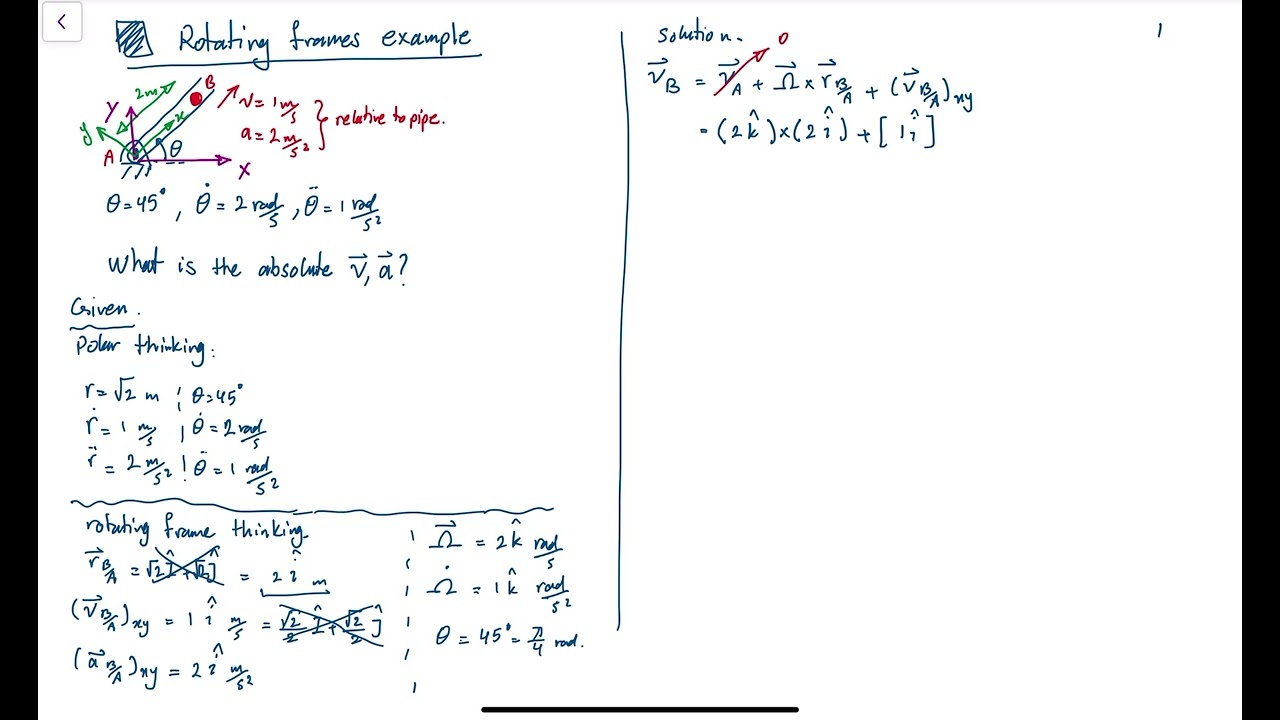 Rotating frames example
2m
B
Y
y
x
A
θ
X
v = 1 m/s
a = 2 m/s²
} relative to pipe.
θ = 45°, θ̇ = 2 rad/s, θ̈ = 1 rad/s²
What is the absolute v⃗, a⃗?
Given.
Polar thinking:
r = √2 m ¦ θ = 45°
ṙ = 1 m/s ¦ θ̇ = 2 rad/s
r̈ = 2 m/s² ¦ θ̈ = 1 rad/s²
rotating frame thinking.
r⃗ B/A = √2 Î + √2 Ĵ = 2 î m
(v⃗ B/A)xy = 1 î m/s = √2/2 Î + √2/2 Ĵ
(a⃗ B/A)xy = 2 î m/s²
Ω⃗ = 2 k̂ rad/s
Ω̇ = 1 k̂ rad/s²
θ = 45° = π/4 rad.
Solution.
0
v⃗B = v⃗A + Ω⃗ × r⃗ B/A + (v⃗ B/A)xy
= (2 k̂) × (2 î) + [1 î]
1